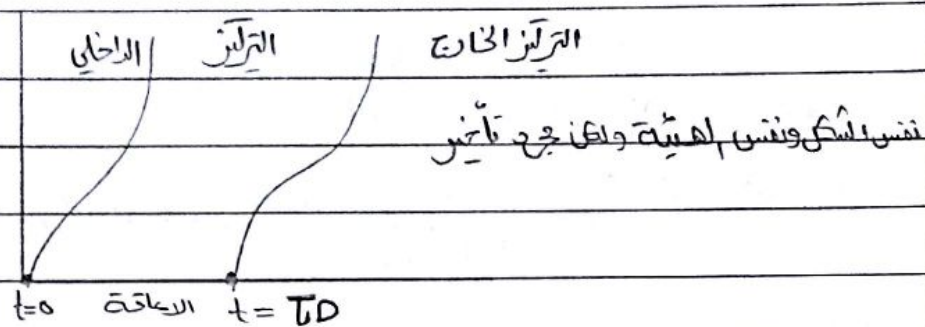 التركيز الداخلي
التركيز الخارج
نفس الشكل ونفس الهيئة ولكن مع تأخير
t=0 الاعاقة t = τD